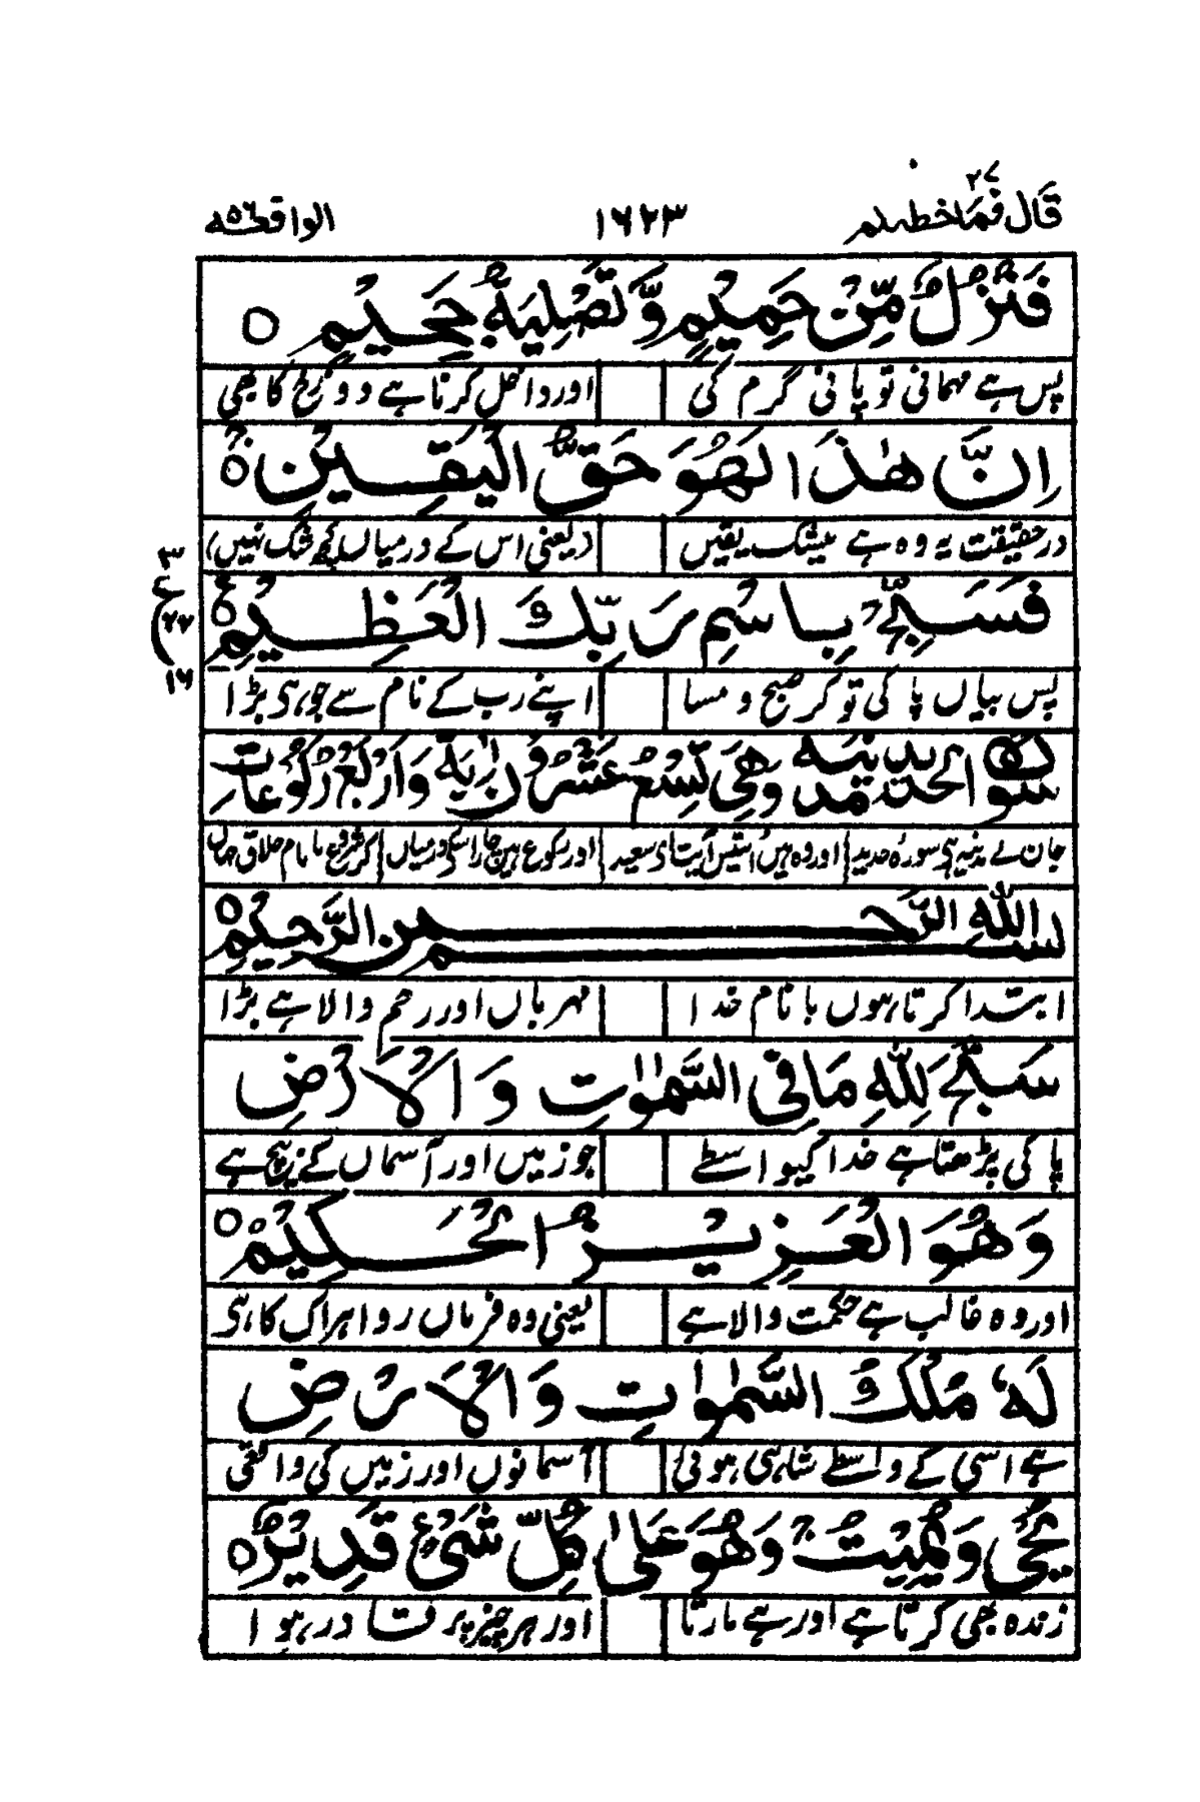 قال فما خطبکم ۲۷ ۱۶۲۳ الواقعہ ۵۶
فَنُزُلٌ مِّنْ حَمِيْمٍ وَّ تَصْلِيَةُ جَحِيْمٍ ○
پس ہے مہمانی تو پانی گرم کی اور داخل کرنا ہے دوزخ کا بھی
اِنَّ هٰذَا لَهُوَ حَقُّ الْيَقِيْنِ ○
در حقیقت یہ وہ ہے بیشک یقیں (یعنی اس کے درمیاں کچھ شک نہیں)
فَسَبِّحْ بِاسْمِ رَبِّكَ الْعَظِيْمِ ○
۳ ع ۲۲ ۱۶
پس بیاں پاکی تو کر صبح و مسا اپنے رب کے نام سے جو ہی بڑا
سورة الحديد مدنية وهي تسع عشرون اٰية وَاَرْبَعُ رُكُوْعَاتٍ
جان لے مدنیہ ہی سورہ حدید اور وہ ہیں انتیس آیت ای سعید اور رکوع ہیں چار اسکے درمیاں کر شروع با نام خلاق جہاں
بسم اللهِ الرَّحْمٰنِ الرَّحِيْمِ ○
ابتدا کرتا ہوں با نام خدا مہرباں اور رحم والا ہے بڑا
سَبَّحَ لِلّٰهِ مَا فِي السَّمٰوٰتِ وَالْاَرْضِ
پاکی پڑھتا ہے خدا کیواسطے جو زمیں اور آسماں کے بیچ ہے
وَهُوَ الْعَزِيْزُ الْحَكِيْمُ ○
اور وہ غالب ہے حکمت والا ہے یعنی وہ فرماں روا ہر اک کا ہی
لَهٗ مُلْكُ السَّمٰوٰتِ وَالْاَرْضِ
ہے اسی کے واسطے شاہی ہوئی آسمانوں اور زمیں کی واقعی
يُحْيٖ وَيُمِيْتُ وَهُوَ عَلٰى كُلِّ شَيْءٍ قَدِيْرٌ ○
زندہ بھی کرتا ہے اور ہے مارتا اور ہر چیز پر قادر ہوا